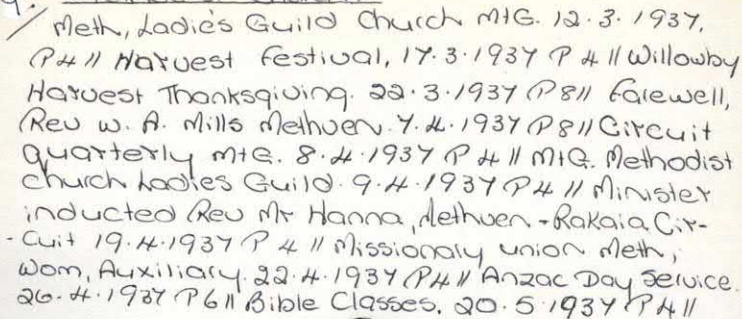 9.
/ Meth, Ladies Guild Church MtG. 12.3.1937.
P4 // Harvest Festival, 17.3.1937 P 4 // Willowby
Harvest Thanksgiving. 22.3.1937 P8 // Farewell,
Rev W. A. Mills Methven. 7.4.1937 P8 // Circuit
Quarterly MtG. 8.4.1937 P 4 // MtG. Methodist
Church Ladies Guild. 9.4.1937 P4 // Minister
inducted Rev Mr Hanna, Methven - Rakaia Cir-
-cuit 19.4.1937 P 4 // Missionary union Meth,
Wom, Auxiliary. 22.4.1937 P4 // Anzac Day Service.
26.4.1937 P6 // Bible Classes, 20.5.1937 P4 //